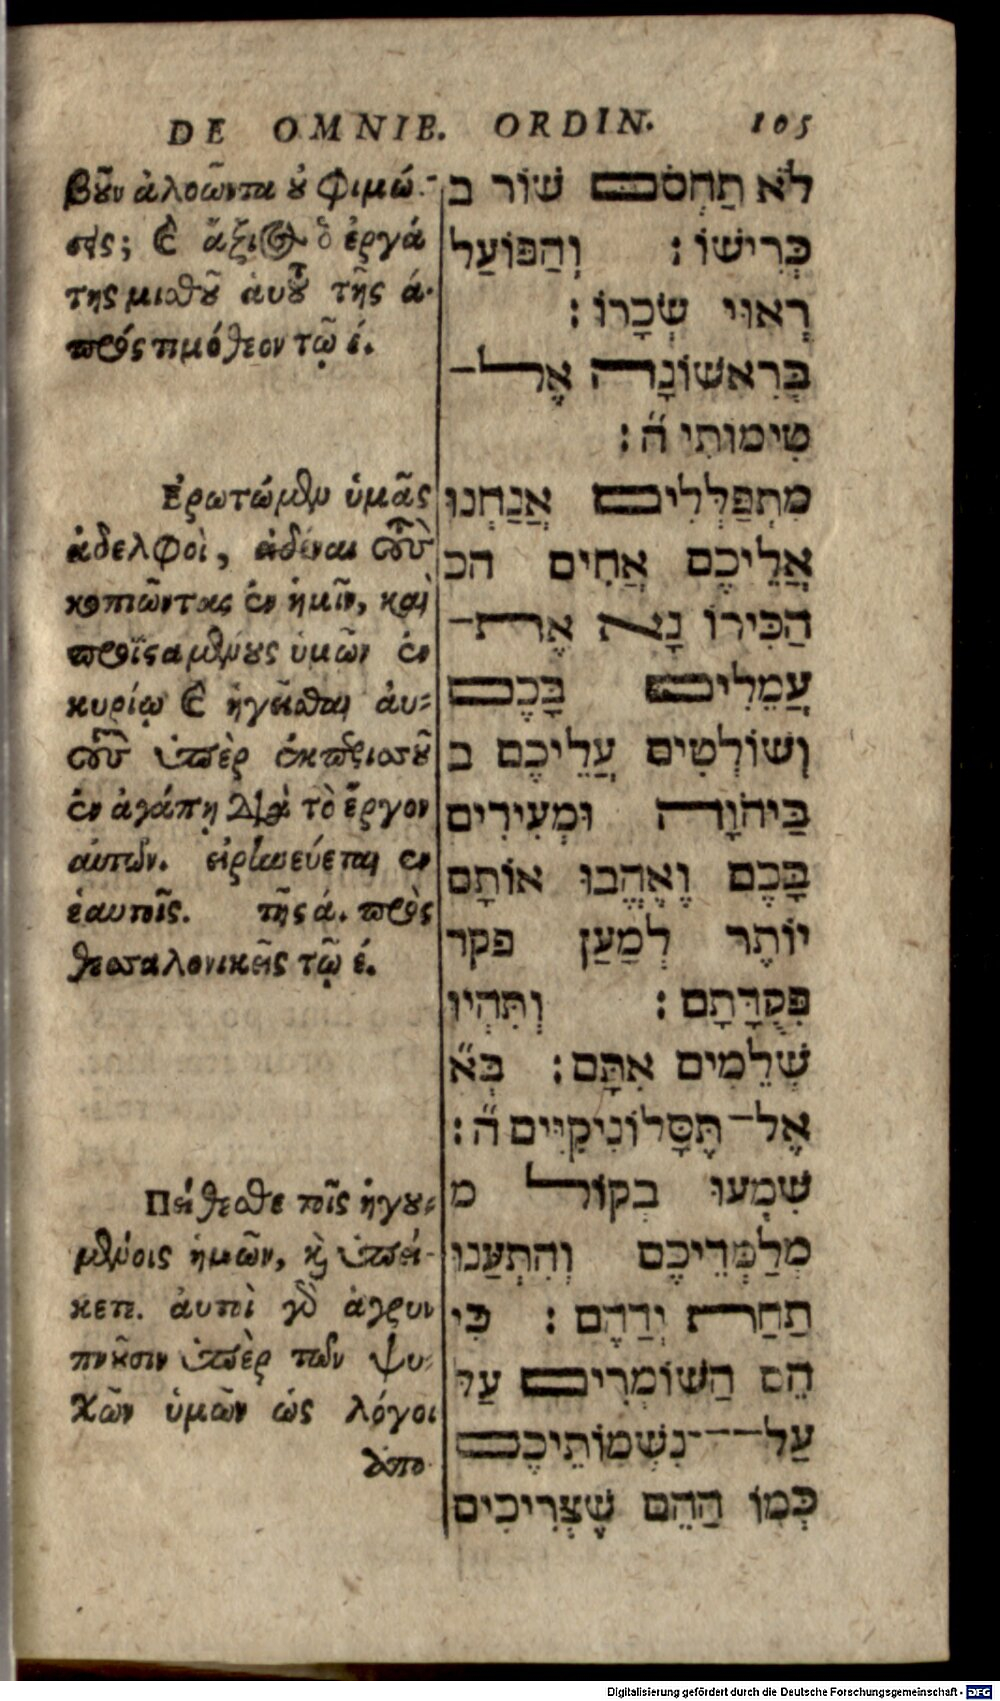 DE OMNIB. ORDIN. 105
βοῦν ἀλοῶντα οὐ φιμώ-
σεις; καὶ ἄξιος ὁ ἐργά
της μισθοῦ αὐτοῦ τῆς ά.
πρός τιμόθεον τῷ έ.
Ἐρωτώμεν ὑμᾶς
ἀδελφοὶ, εἰδέναι τοὺς
κοπιῶντας ἐν ἡμῖν, καὶ
προϊσαμένους ὑμῶν ἐν
κυρίῳ καὶ ἡγεῖσθαι αὐ-
τοὺς ὑπὲρ ἐκπερισσοῦ
ἐν ἀγάπῃ διὰ τὸ ἔργον
αὐτῶν. εἰρηνεύεται ἐν
ἑαυτοῖς. τῆς ά. πρὸς
θεσσαλονικεῖς τῷ έ.
Πείθεσθε τοῖς ἡγου-
μένοις ἡμῶν, καὶ ὑπεί-
κετε. αὐτοὶ γὰρ ἀγρυπ
πνοῦσιν ὑπὲρ τῶν ψυ-
χῶν ὑμῶν ὡς λόγοι
ἀπο
לֹא תַחְסֹם שׁוֹר ב
כְּרִישׁוֹ׃ וְהַפּוֹעַל
רָאוּי שְׂכָרוֹ׃
בְּרִאשׁוֹנָה אֶל־
טִימוֹתִי ה״׃
מִתְפַּלְּלִים אֲנַחְנוּ
אֲלֵיכֶם אַחִים הכ
הַכִּירוֹ נָא אֶת־
עֲמֵלִים בָּכֶם
וְשׁוֹלְטִים עֲלֵיכֶם ב
בַּיהֹוָה וּמְעִירִים
בָּכֶם וֶאֱהֱבוּ אוֹתָם
יוֹתֶר לְמַעַן פקר
פְּקֻדָּתָם׃ וְתִּהְיוּ
שְׁלֵמִים אִתָּם׃ בְּא״
אֶל־תֶּסָּלוֹנִיקִיִּים ה״׃
שִׁמְעוּ בְקוֹל מ
מְלַמְּדֵיכֶם וְהִתְעַנּוּ
תַחַת יְדֵהֶם׃ כִּי
הֵם הַשּׁוֹמְרִים עַל
עַל־נִשְׁמוֹתֵיכֶם
כְּמוֹ הַהֵם שֶׁצְּרִיכִים
Digitalisierung gefördert durch die Deutsche Forschungsgemeinschaft - DFG